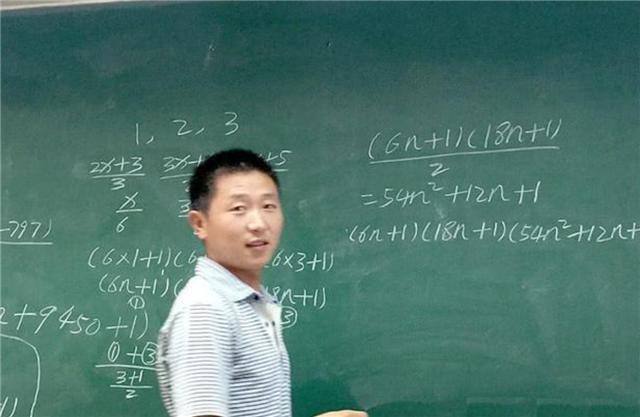 1, 2, 3
2x+3
3
x
6
(6×1+1)(6
6×3+1)
(6n+1)
8n+1)
①
③
-797)
+9450+1)
①+③
3+1
2
(6n+1)(18n+1)
2
=54n²+12n+1
(6n+1)(18n+1)(54n²+12n+